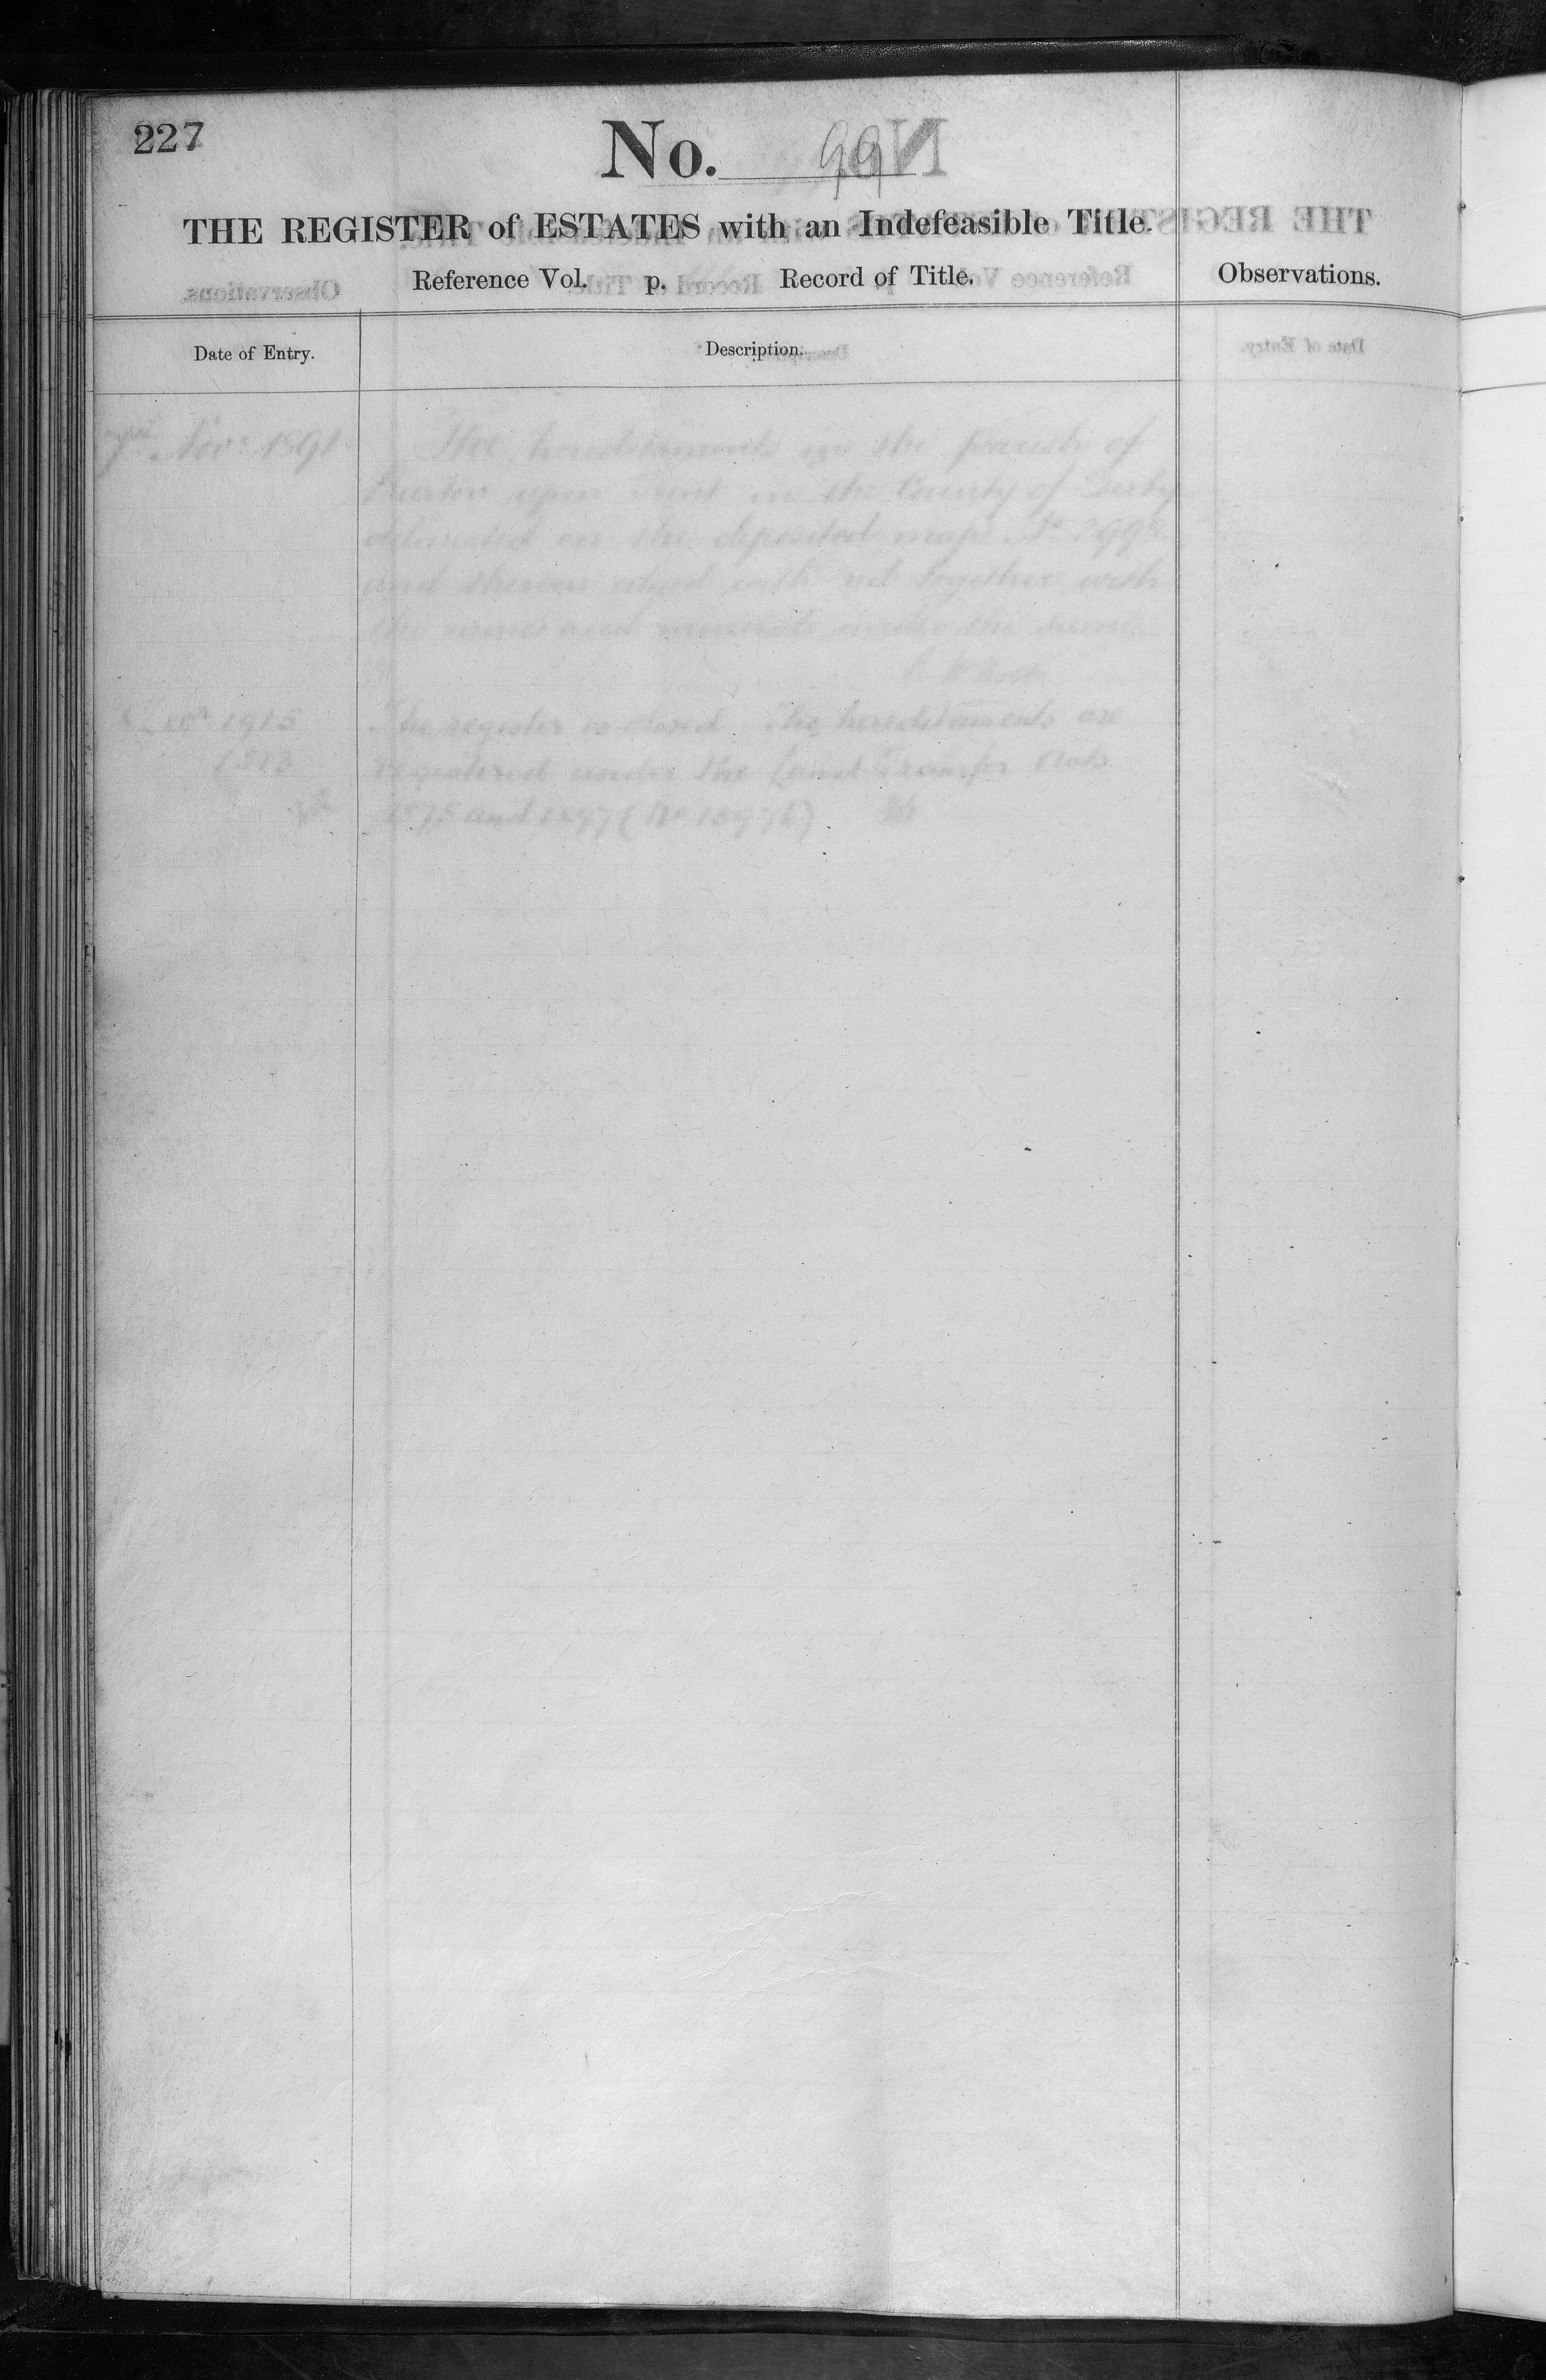 227
No.
THE REGISTER of ESTATES with an Indefeasible Title.
Reference Vol. p. Record of Title.
Observations.
Date of Entry.
Description.
Nov. 1891
The hereditaments in the parish of
Burton upon Trent in the County of Derby
delineated on the deposited map No. 3998
and thereon edged with red together with
the mines and minerals under the same
1915
The register is closed. The hereditaments are
1213
registered under the Land Transfer Acts
1875 and 1897 (No. 18976)